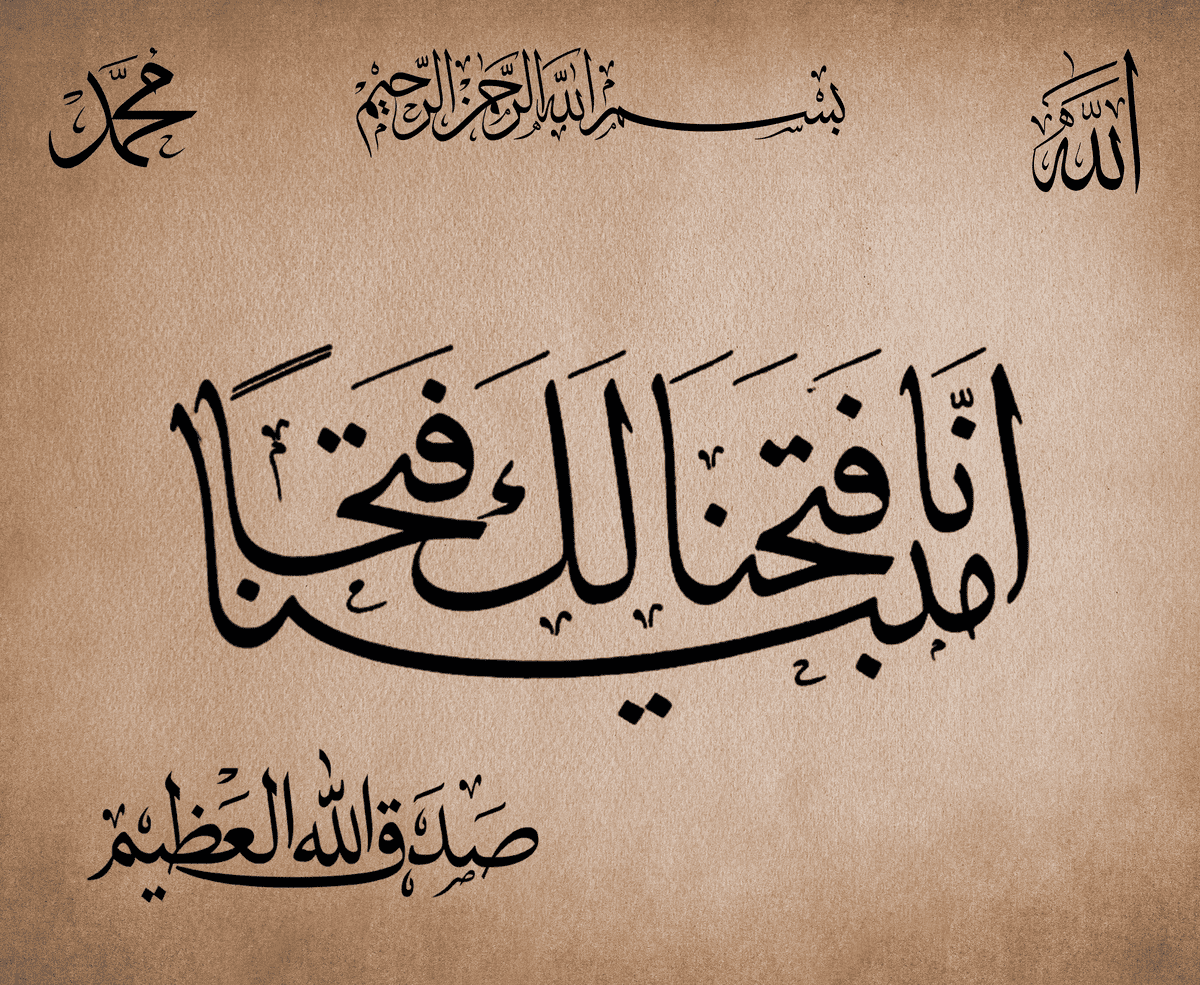 الله
بسم الله الرحمن الرحيم
محمد
انا فتحنا لك فتحا
مبينا
صدق الله العظيم